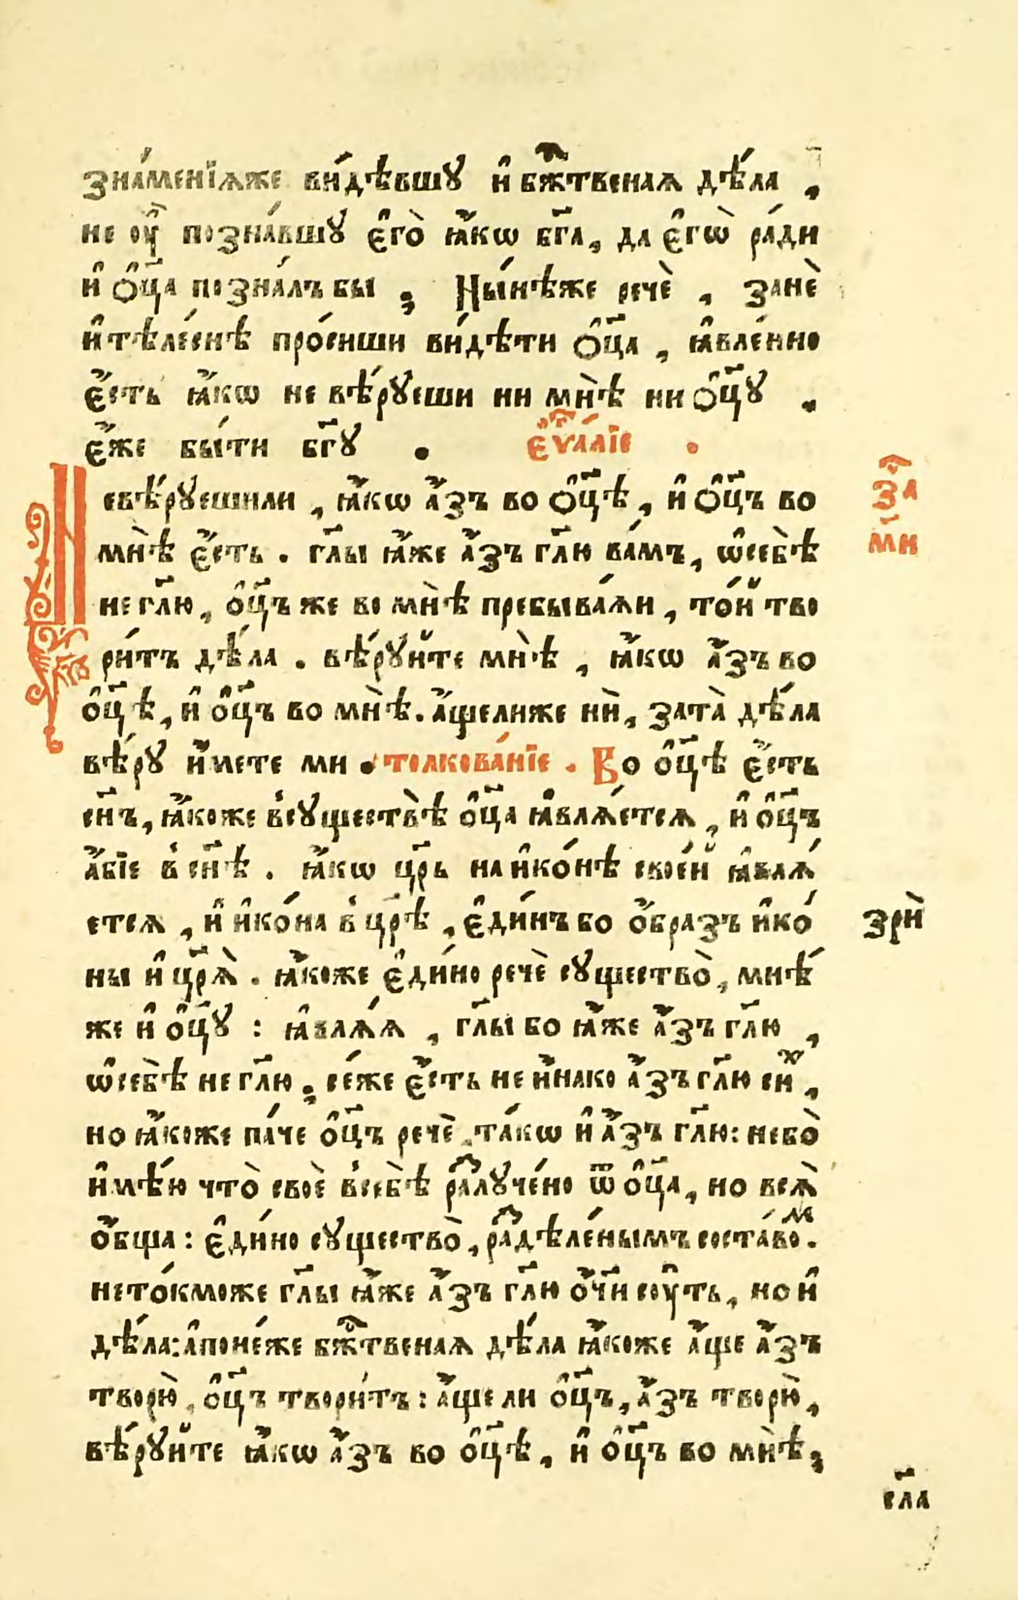 зна́менїѧже ви́дѣвшꙋ и҆ бж҃твенаѧ дѣ́ла ,
не ᲂу҆ позна́вшꙋ є҆го̀ ꙗ҆́кѡ бг҃а, да є҆гѡ̀ ра́ди
и҆ ѻ҆ц҃а позна́лъ бы ; Ны́нѣже речѐ , занѐ
и҆ тѣле́снѣ про́сиши ви́дѣти ѻ҆ц҃а , ꙗ҆вле́нно
є҆́сть ꙗ҆́кѡ не вѣ́рꙋеши ни мнѣ̀ ни ѻ҆ц҃ꙋ .
є҆́же бы́ти бг҃ꙋ . є҆ѵⷢ҇а́лїе .
Не вѣ́рꙋешили , ꙗ҆́кѡ а҆́зъ во ѻ҆ц҃ѣ , и҆ ѻ҆ц҃ъ во
мнѣ̀ є҆́сть . гл҃ы ꙗ҆̀же а҆́зъ гл҃ю ва́мъ, ѡ҆себѣ̀
не гл҃ю , ѻ҆ц҃ъ же во мнѣ̀ пребыва́ѧи , то́й тво
ри́тъ дѣ́ла . вѣ́рꙋйте мнѣ̀ , ꙗ҆́кѡ а҆́зъ во
ѻ҆ц҃ѣ , и҆ ѻ҆ц҃ъ во мнѣ̀ . а҆́щелиже нѝ , зата̀ дѣ́ла
вѣ́рꙋ и҆́мете ми . толкова́нїе . Во ѻ҆ц҃ѣ є҆́сть
сн҃ъ, ꙗ҆́коже в̾сꙋществѣ̀ ѻ҆ц҃а ꙗ҆влѧ́етсѧ , и҆ ѻ҆ц҃ъ
а҆́бїе в̾ сн҃ѣ . ꙗ҆́кѡ цр҃ь на и҆ко́нѣ свое́й ꙗ҆влѧ́
етсѧ , и҆ и҆ко́на в̾ цр҃ѣ , є҆ди́нъ бо ѻ҆́бразъ и҆ко́
ны и҆ цр҃ѧ̀ . ꙗ҆́коже є҆ди́но речѐ сꙋщество̀ , мнѣ́
же и҆ ѻ҆ц҃ꙋ : ꙗ҆влѧ́ѧ , гл҃ы бо ꙗ҆̀же а҆́зъ гл҃ю ,
ѡ҆себѣ̀ не гл҃ю ; се́же є҆́сть не и҆́нако а҆́зъ гл҃ю сн҃ ,
но ꙗ҆́коже па́че ѻ҆ц҃ъ речѐ , та́кѡ и҆ а҆́зъ гл҃ю : небо̀
и҆мѣ́ю что̀ своѐ в̾себѣ̀ раⷥлꙋче́но ѿ ѻ҆ц҃а , но всѧ̀
ѻ҆́бща : є҆ди́но сꙋщество̀ , раⷥдѣле́нымъ соста́воⷨ .
нето́кможе гл҃ы ꙗ҆̀же а҆́зъ гл҃ю ѻ҆́ч҃и сꙋ́ть , но и҆
дѣ́ла: а҆поне́же бж҃твенаѧ дѣ́ла ꙗ҆́коже а҆́ще а҆́зъ
творю̀ , ѻ҆ц҃ъ твори́тъ : а҆́ще ли ѻ҆ц҃ъ, а҆́зъ творю̀ ,
вѣ́рꙋйте ꙗ҆́кѡ а҆́зъ во ѻ҆ц҃ѣ , и҆ ѻ҆ц҃ъ во мнѣ̀ ;
за
м҃и
зрѝ
сл҃а